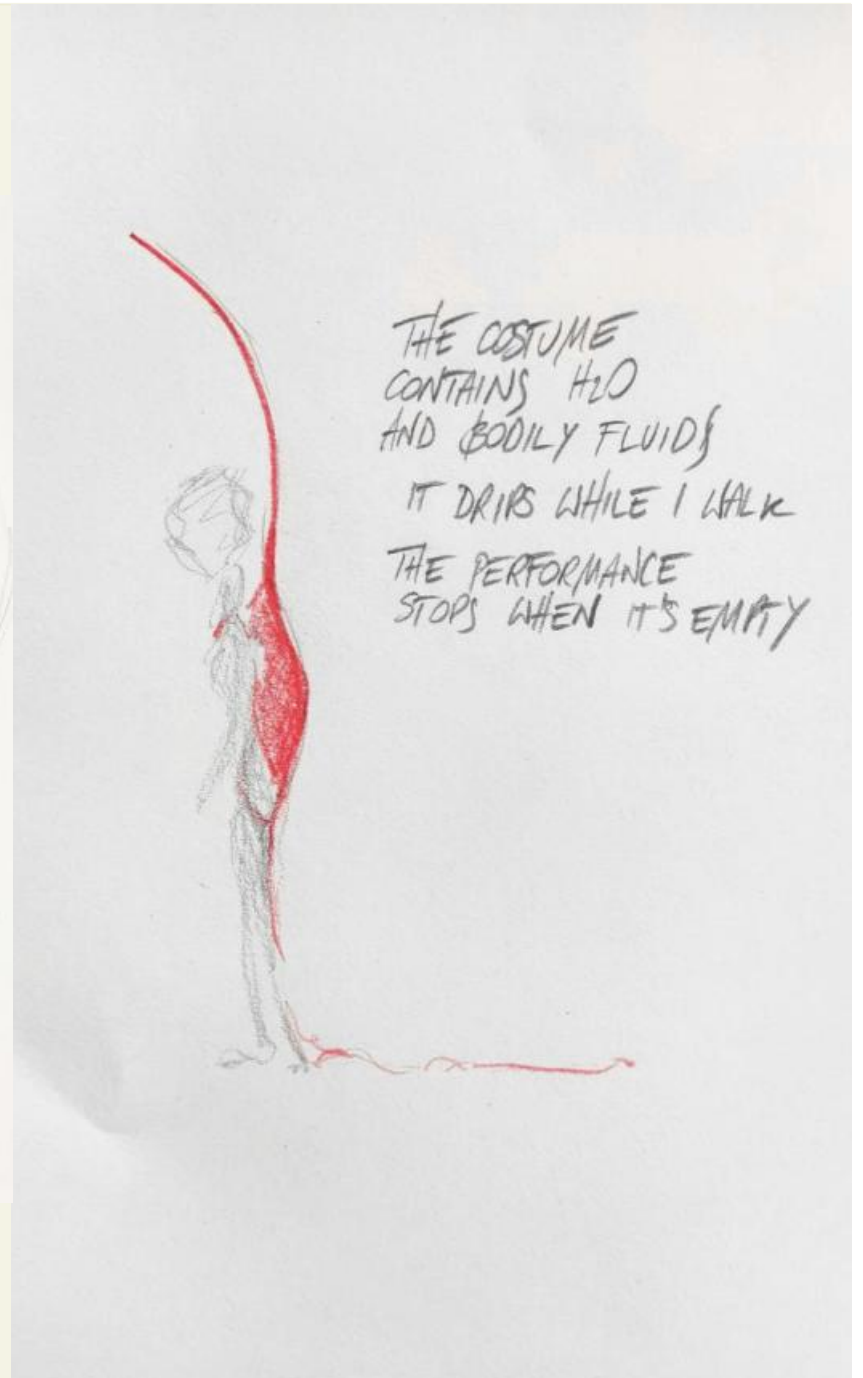 THE COSTUME
CONTAINS H2O
AND BODILY FLUIDS
IT DRIPS WHILE I WALK
THE PERFORMANCE
STOPS WHEN IT'S EMPTY